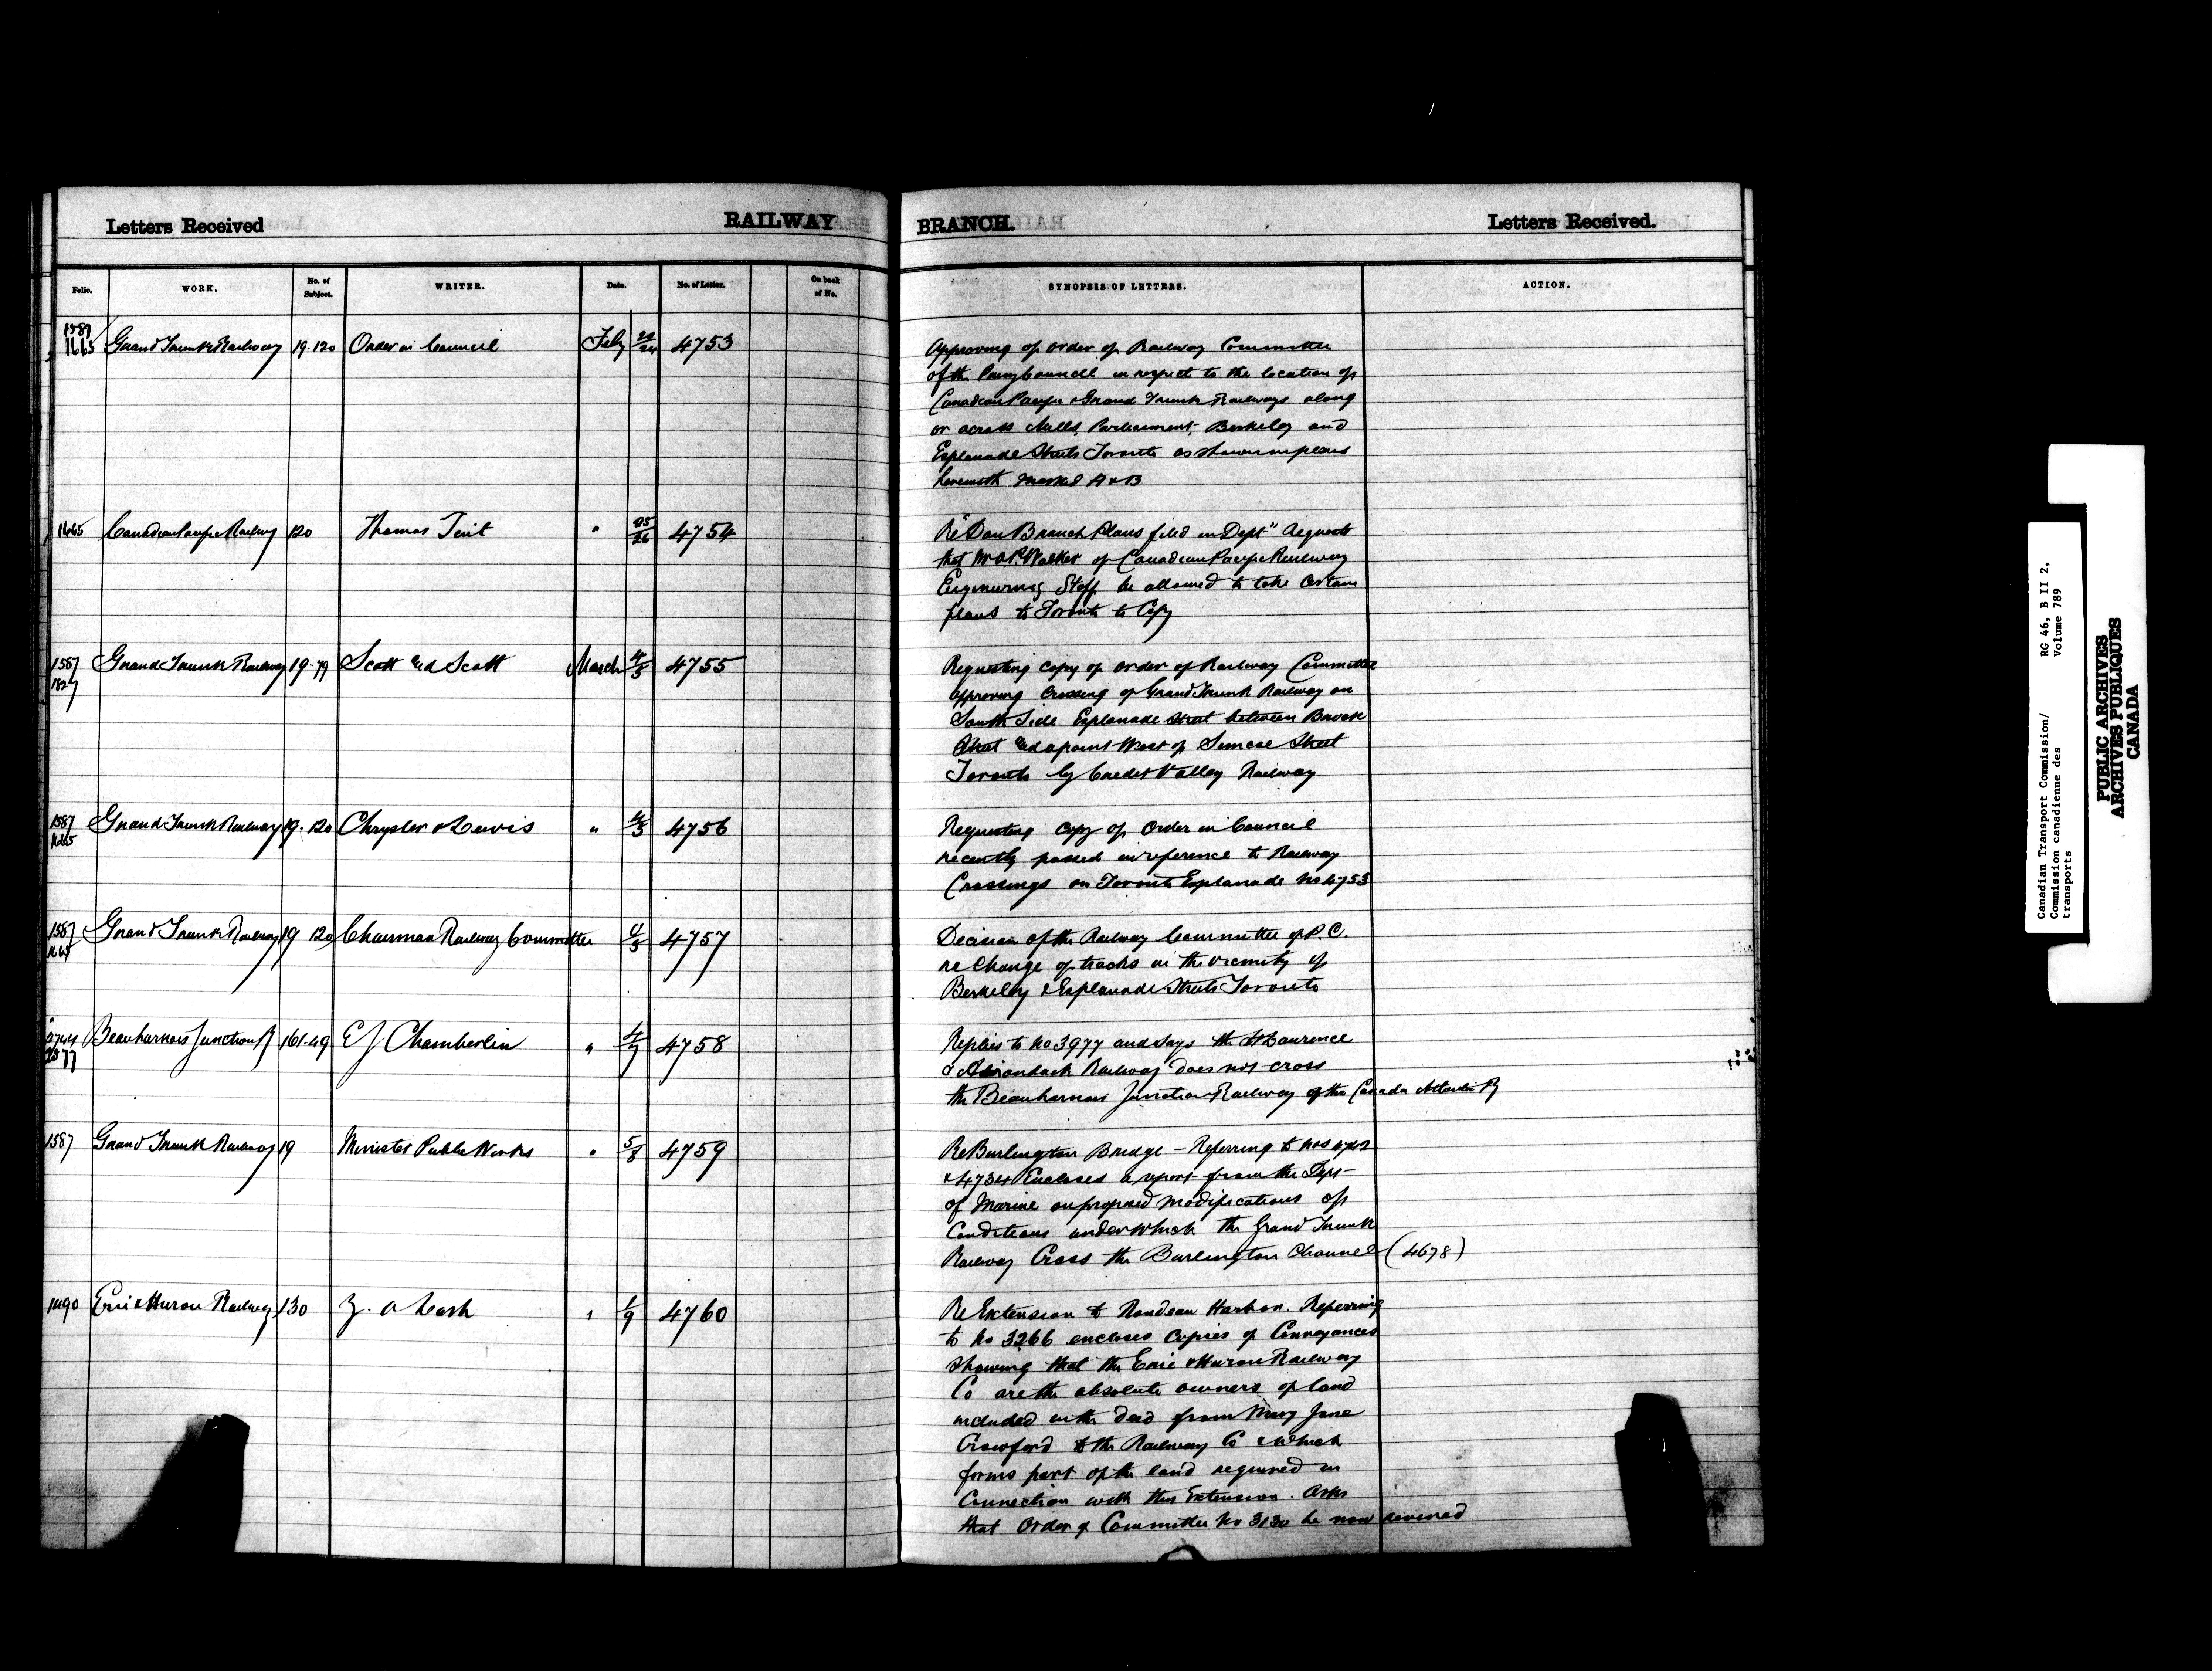 Letters Received RAILWAY BRANCH. Letters Received.
Folio. WORK. No. of Subject. WRITER. Date. No. of Letter. On back of No. SYNOPSIS OF LETTERS. ACTION.
1587
1665 Grand Trunk Railway 19-120 Order in Council Feby 22/24 4753
Approving of order of Railway Committee
of the Privy Council in respect to the location of
Canadian Pacific & Grand Trunk Railways along
or across Mills, Parliament, Berkeley and
Esplanade Streets Toronto as shown on plans
herewith marked A & B
1665 Canadian Pacific Railway 120 Thomas Tait " 25/26 4754
Re "Don Branch Plans filed in Dept" Requests
that Mr Walker of Canadian Pacific Railway
Engineering Staff be allowed to take certain
plans to Toronto to Copy
1587
1827 Grand Trunk Railway 19-79 Scott and Scott March 4/5 4755
Requesting copy of order of Railway Committee
approving crossing of Grand Trunk Railway on
South Side Esplanade Street between Brock
Street and a point West of Simcoe Street
Toronto by Credit Valley Railway
1587
1665 Grand Trunk Railway 19-120 Chrysler & Lewis " 4/5 4756
Requesting copy of Order in Council
recently passed in reference to Railway
Crossings on Toronto Esplanade No 4753
1587
1665 Grand Trunk Railway 19 120 Chairman Railway Committee 4/5 4757
Decision of the Railway Committee of P.C.
re change of tracks in the vicinity of
Berkeley & Esplanade Streets Toronto
2744
Beauharnois Junction R 161-49 E J Chamberlin " 4/7 4758
Replies to No 3977 and says the St Lawrence
& Adirondack Railway does not cross
the Beauharnois Junction Railway of the Canada Atlantic Ry
1587 Grand Trunk Railway 19 Minister Public Works " 5/8 4759
Re Burlington Bridge - Referring to Nos 4742
& 4734 Encloses a report from the Dept
of Marine on proposed modifications of
Conditions under which the Grand Trunk
Railway Cross the Burlington Channel (4678)
1490 Erie & Huron Railway 130 Z. A Lash " /9 4760
Re Extension to Rondeau Harbor. Referring
to No 3266 encloses Copies of Conveyances
showing that the Erie & Huron Railway
Co are the absolute owners of land
included in the deed from Mary Jane
Crawford to the Railway Co & which
forms part of the land required in
Connection with this Extension. Asks
that Order of Committee No 3130 be now
Canadian Transport Commission/ RG 46, B II 2,
Commission canadienne des Volume 789
transports
PUBLIC ARCHIVES
ARCHIVES PUBLIQUES
CANADA